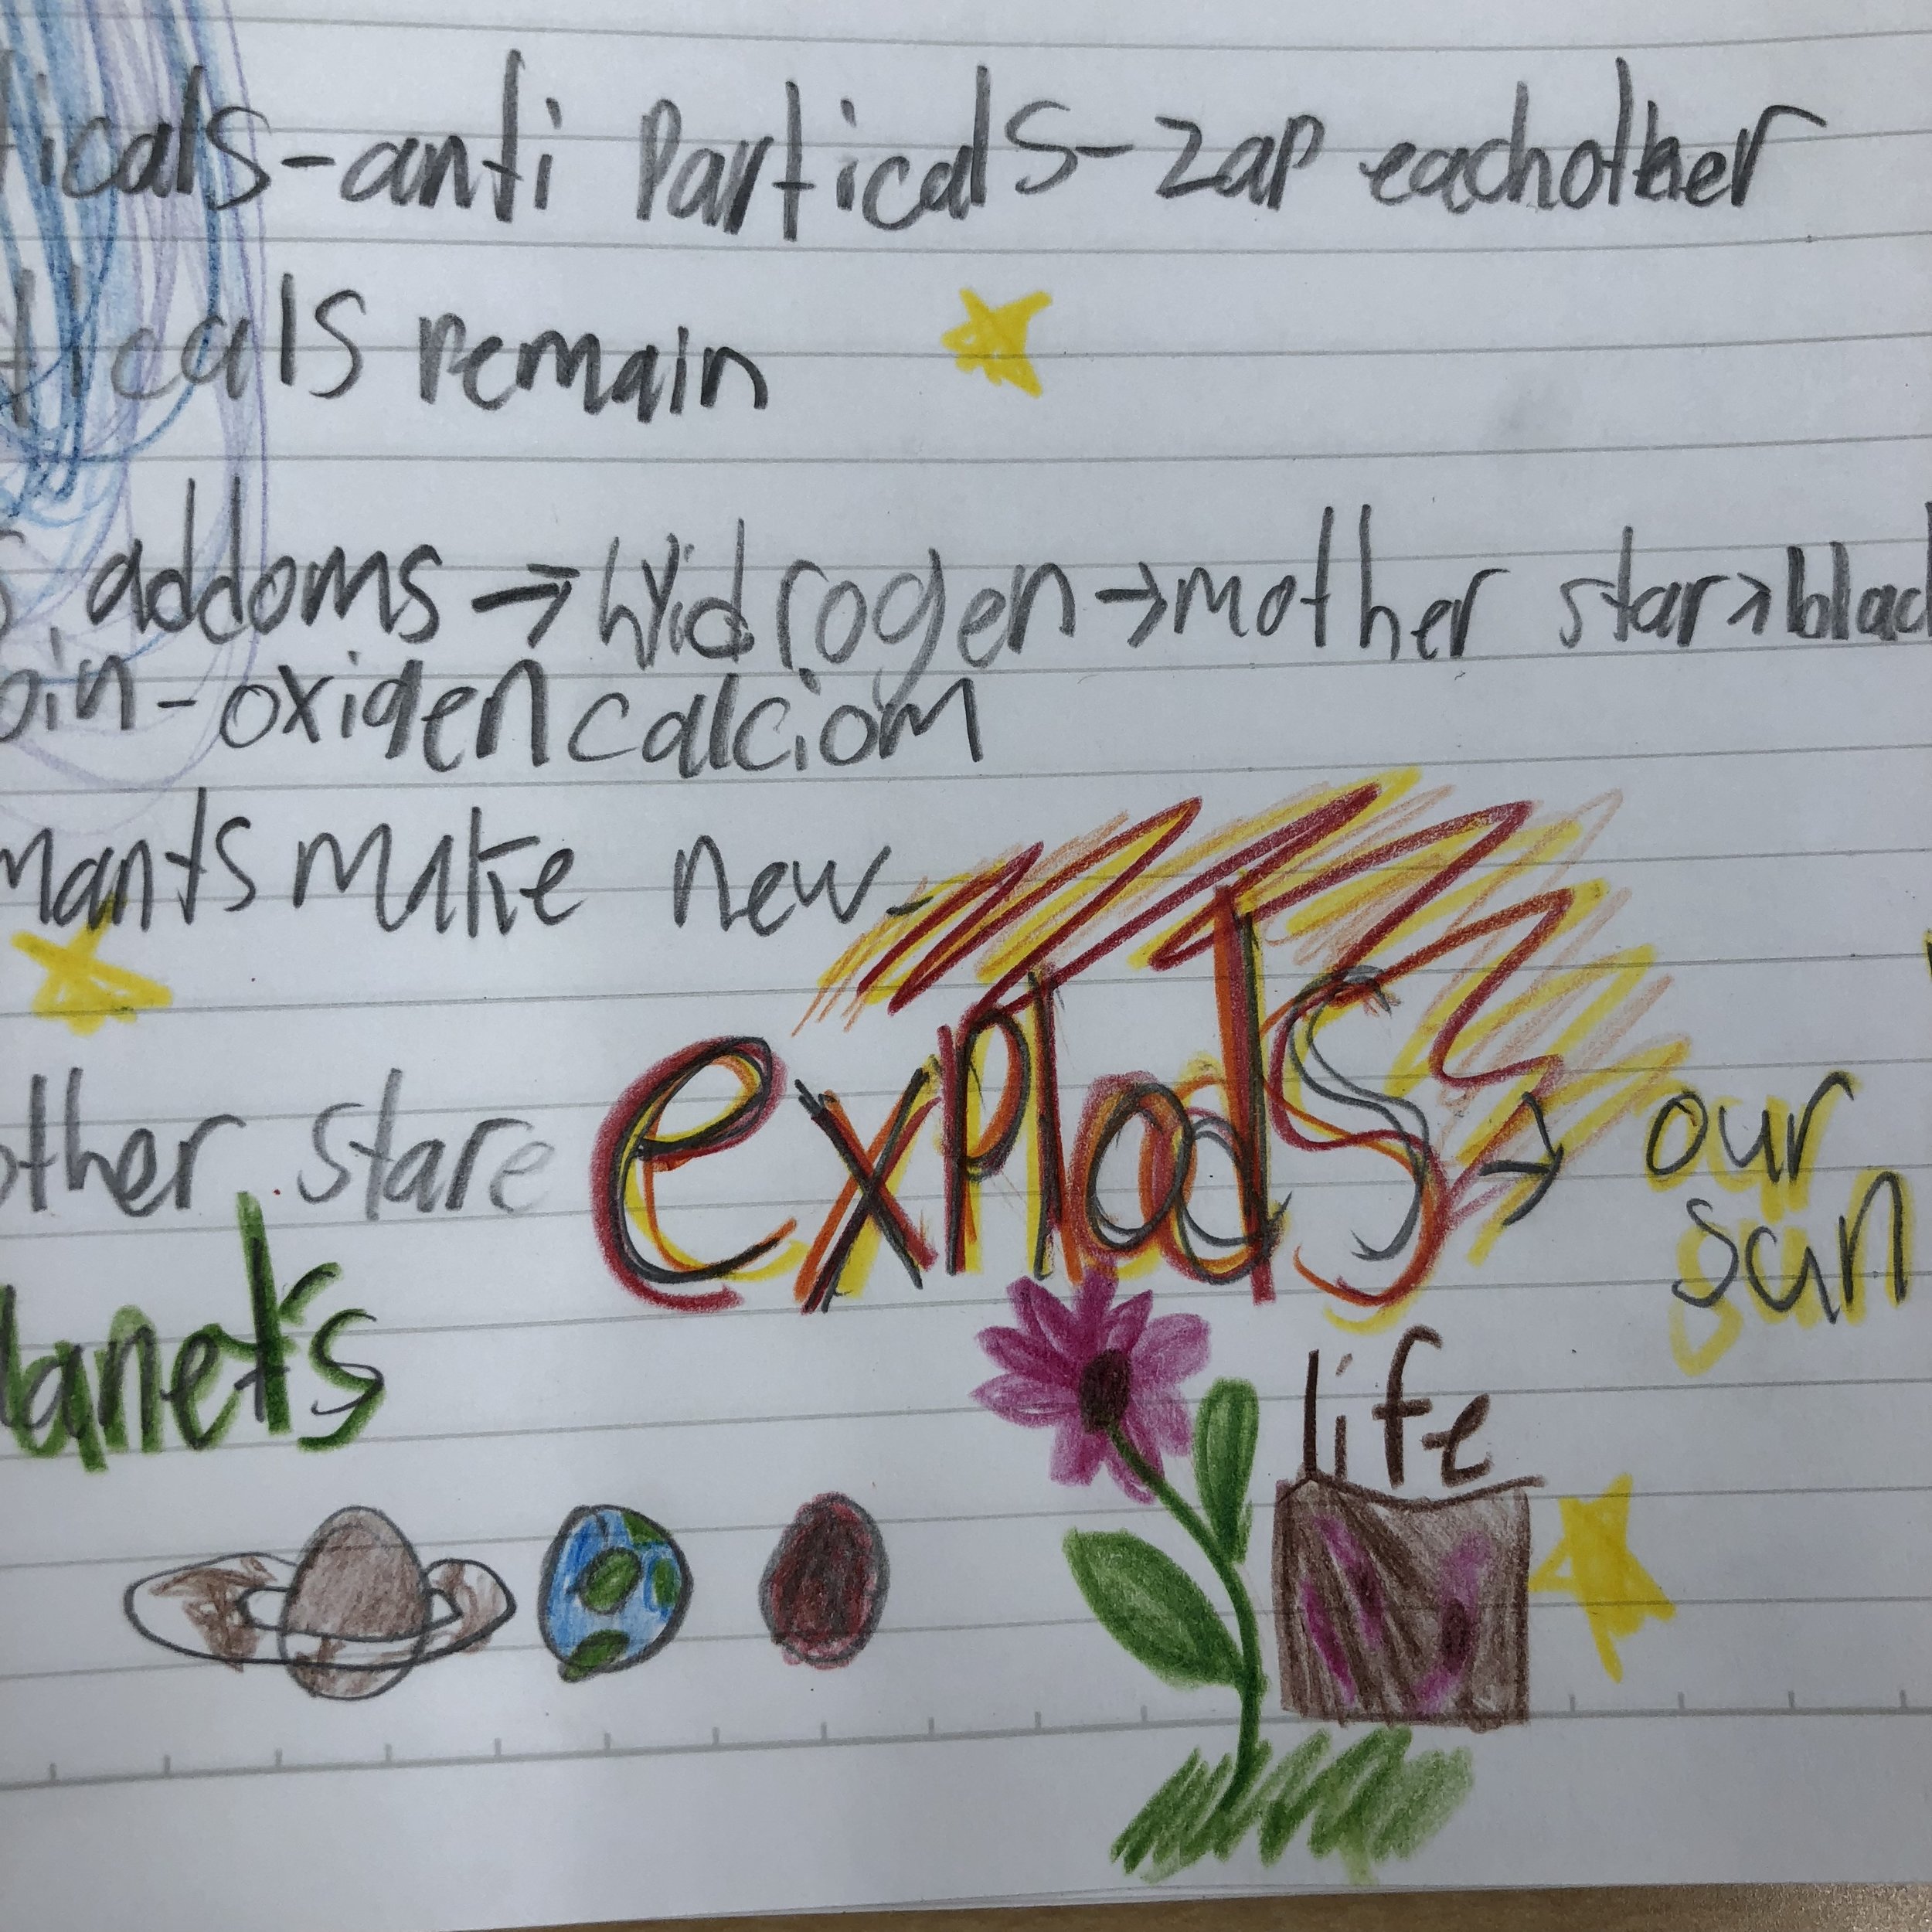 ticals-anti Particals-zap eachother
ticals remain
s addoms→hyidrogen→mother star→blac
oin-oxigen calciom
mants make new-
other stare explods → our
sun
lanets
life